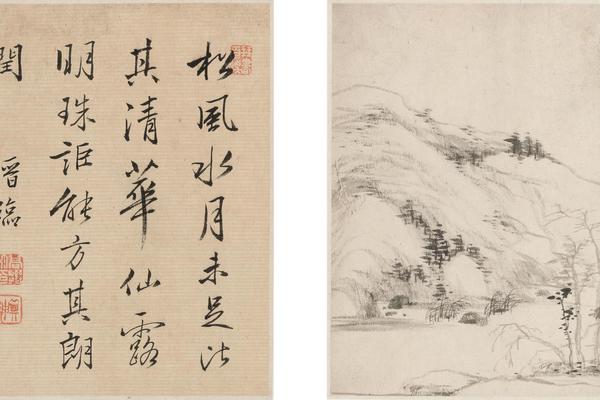 松風水月未足比
其清華仙露
明珠詎能方其朗
潤
晉臨